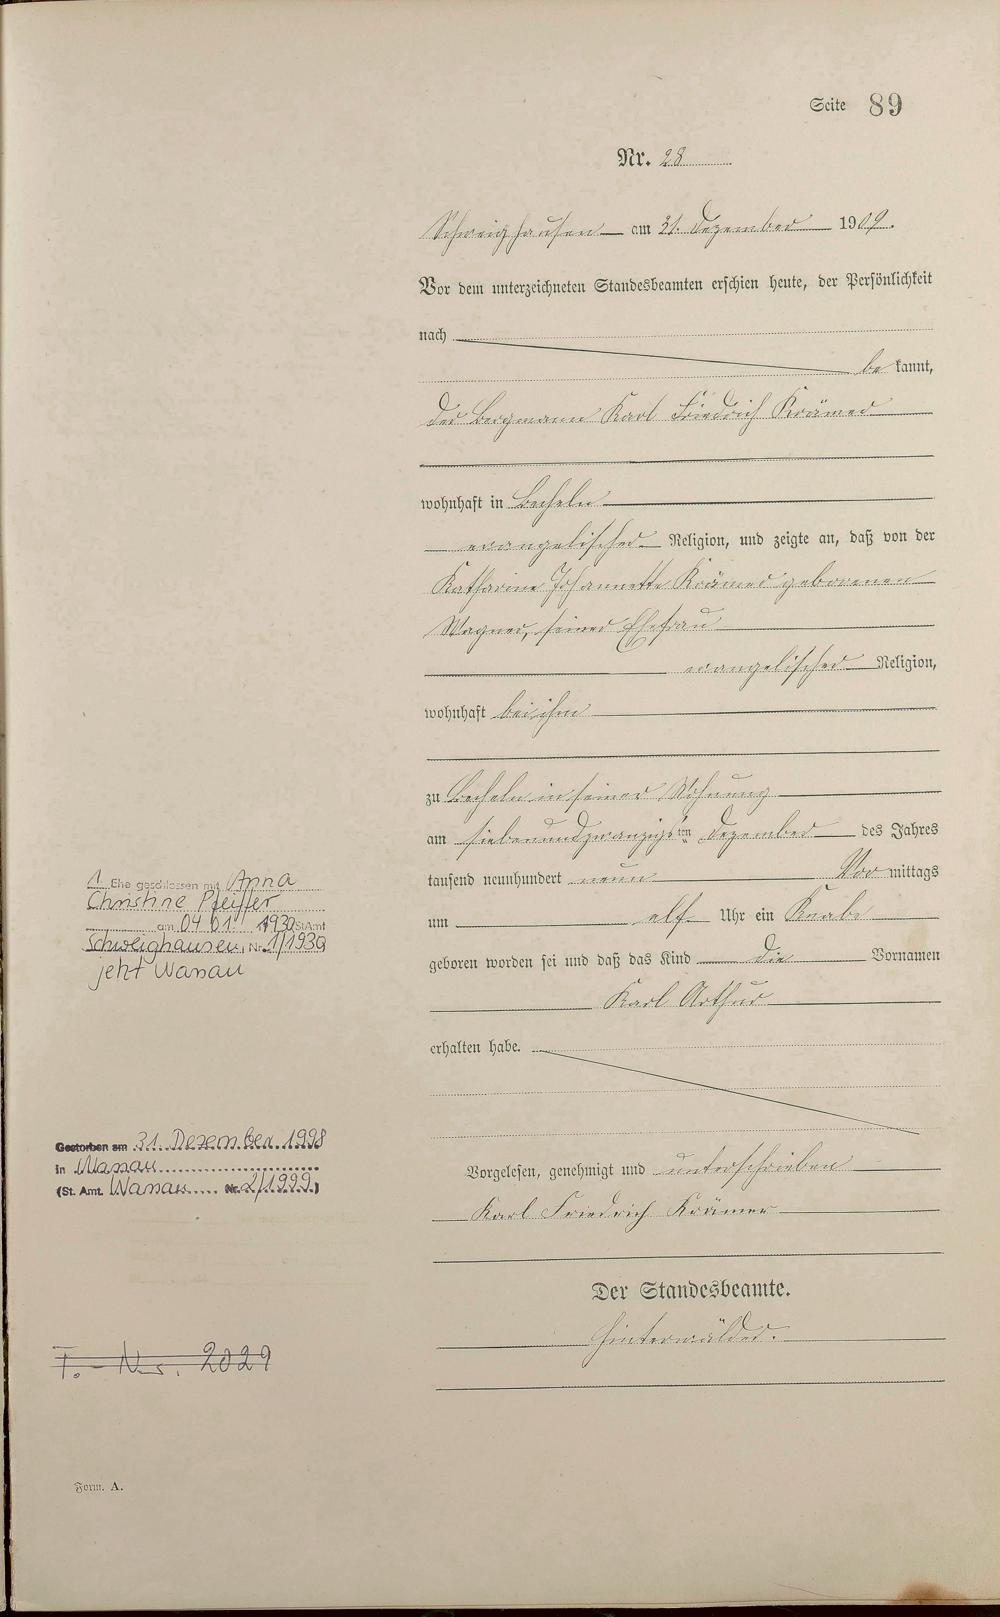 Seite 89
Nr. 28
Schweighausen am 31. Dezember 1909.
Vor dem unterzeichneten Standesbeamten erschien heute, der Persönlichkeit
nach
be kannt,
der Bergmann Karl Friedrich Krämer
wohnhaft in Becheln
evangelischer Religion, und zeigte an, daß von der
Katharine Johannette Krämer geborenen
Wagner, seiner Ehefrau
evangelischer Religion,
wohnhaft bei ihm
zu Becheln in seiner Wohnung
am siebenundzwanzigsten Dezember des Jahres
tausend neunhundert neun Vor mittags
um elf Uhr ein Knabe
geboren worden sei und daß das Kind die Vornamen
Karl Arthur
erhalten habe.
Vorgelesen, genehmigt und unterschrieben
Karl Friedrich Krämer
Der Standesbeamte.
Hinterwälder.
1 Ehe geschlossen mit Anna
Christine Pfeiffer
am 04 01. 1930 StAmt
Schweighausen, Nr. 1/1930
jetzt Nassau
Gestorben am 31. Dezember 1998
in Nassau
(St. Amt. Nassau Nr. 2/1999)
T.-Nr. 2029
Form. A.